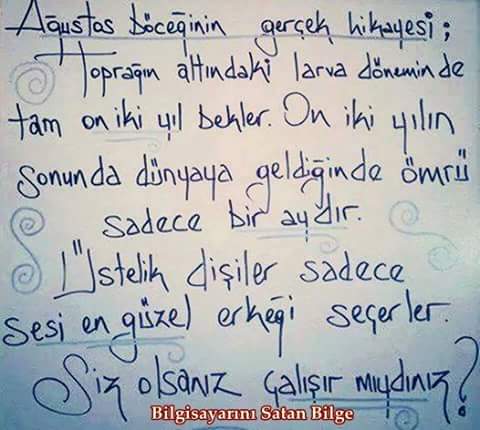 Ağustos böceğinin gerçek hikayesi;
Toprağın altındaki larva döneminde
tam on iki yıl bekler. On iki yılın
sonunda dünyaya geldiğinde ömrü
sadece bir aydır.
Üstelik dişiler sadece
sesi en güzel erkeği seçerler.
Siz olsanız çalışır mıydınız?
Bilgisayarını Satan Bilge